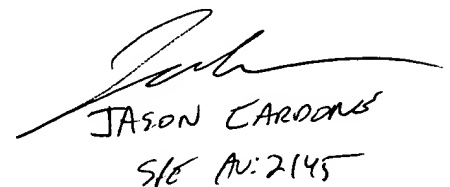 JASON CARDONE
SPE AU: 2145